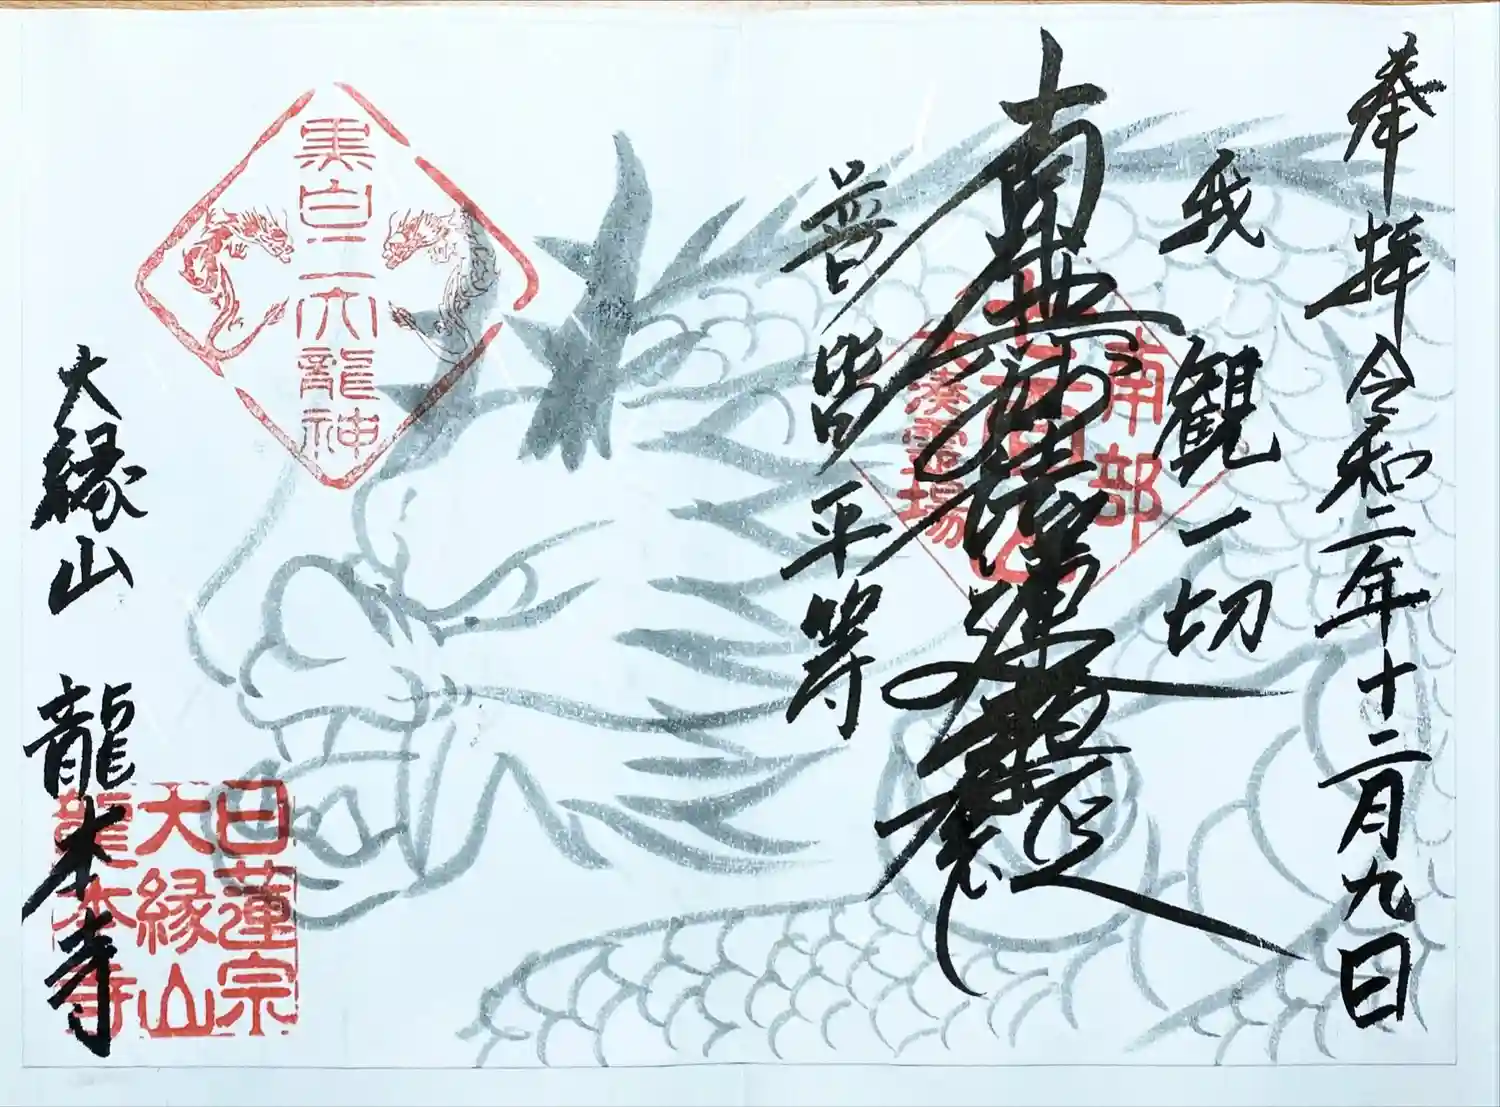 奉拝 令和二年十二月九日
我観一切
南無妙法蓮華経
普皆平等
南部
七面山
大湊霊場
黒白二大龍神
大縁山 龍本寺
日蓮宗
大縁山
龍本寺